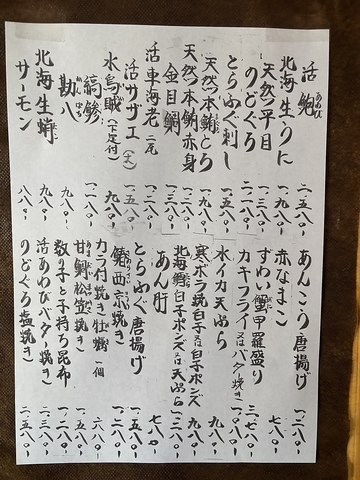 活鮑 二、五八〇-
北海生うに 二、二八〇-
天然平目 一、三八〇-
のどぐろ 二、一八〇-
とらふぐ刺し 一、五八〇-
天然本鮪とろ 一、九八〇-
天然本鮪赤身 一、三八〇-
金目鯛 一、三八〇-
活車海老 二尾 一、二八〇-
活サザエ(大) 一、五八〇-
水烏賊(下足付) 九八〇-
縞鯵 一、二八〇-
勘八 九八〇-
北海生蛸 九八〇-
サーモン 八八〇-
あんこう唐揚げ 一、二八〇-
赤なまこ 七八〇-
ずわい蟹甲羅盛り 三、七八〇-
カキフライ(又はバター焼き) 一、〇八〇-
水イカ天ぷら 九八〇-
寒ボラ焼白子又は白子ポンズ 九八〇-
北海鱈白子ポンズ又は天ぷら 一、三八〇-
あん肝 七八〇-
とらふぐ唐揚げ 一、五八〇-
鰆西京焼き 一、二八〇-
カラ付焼き牡蠣 一個 六八〇-
甘鯛松笠焼き 一、五八〇-
数の子と子持ち昆布 一、二八〇-
活あわびバター焼き 二、三八〇-
のどぐろ塩焼き 二、五八〇-